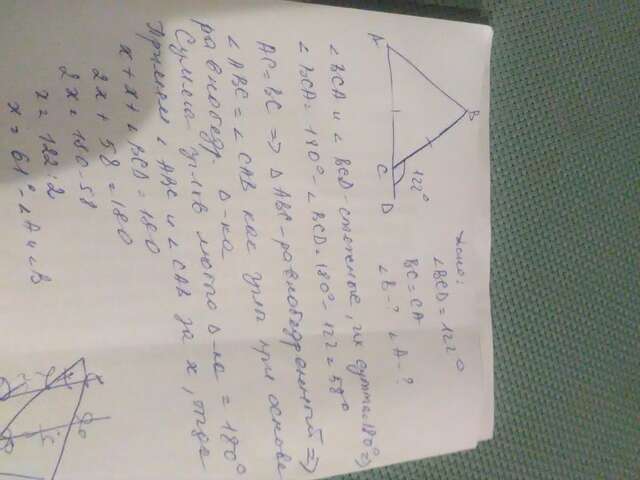 Дано:
∠BCD = 122°
BC = CA
∠B - ? ∠A - ?
A
B
C
D
122°
∠BCA и ∠BCD - смежные, их сумма = 180° ⇒
∠BCA = 180° - ∠BCD = 180° - 122 = 58°
AC = BC ⇒ Δ ABC - равнобедренный ⇒
∠ABC = ∠CAB как углы при основе
равнобедр. Δ-ка
Сумма углов любого Δ-ка = 180°
Примем ∠ABC и ∠CAB за x, тогда
x + x + ∠BCD = 180
2x + 58 = 180
2x = 180 - 58
x = 122 : 2
x = 61° - ∠A и ∠B